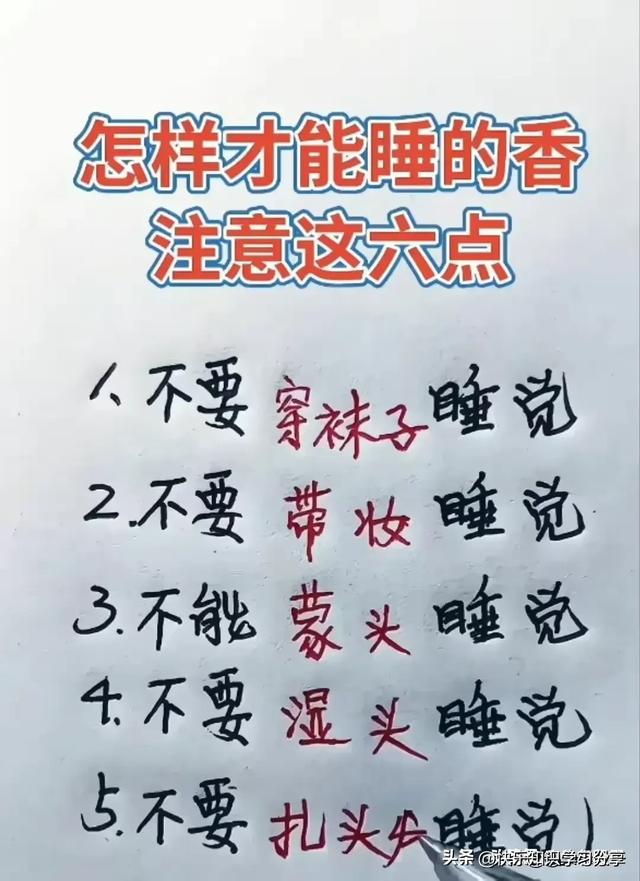 怎样才能睡的香
注意这六点
1、不要穿袜子睡觉
2.不要带妆睡觉
3.不能蒙头睡觉
4.不要湿头睡觉
5.不要扎头睡觉
头条 @快乐知识学习分享